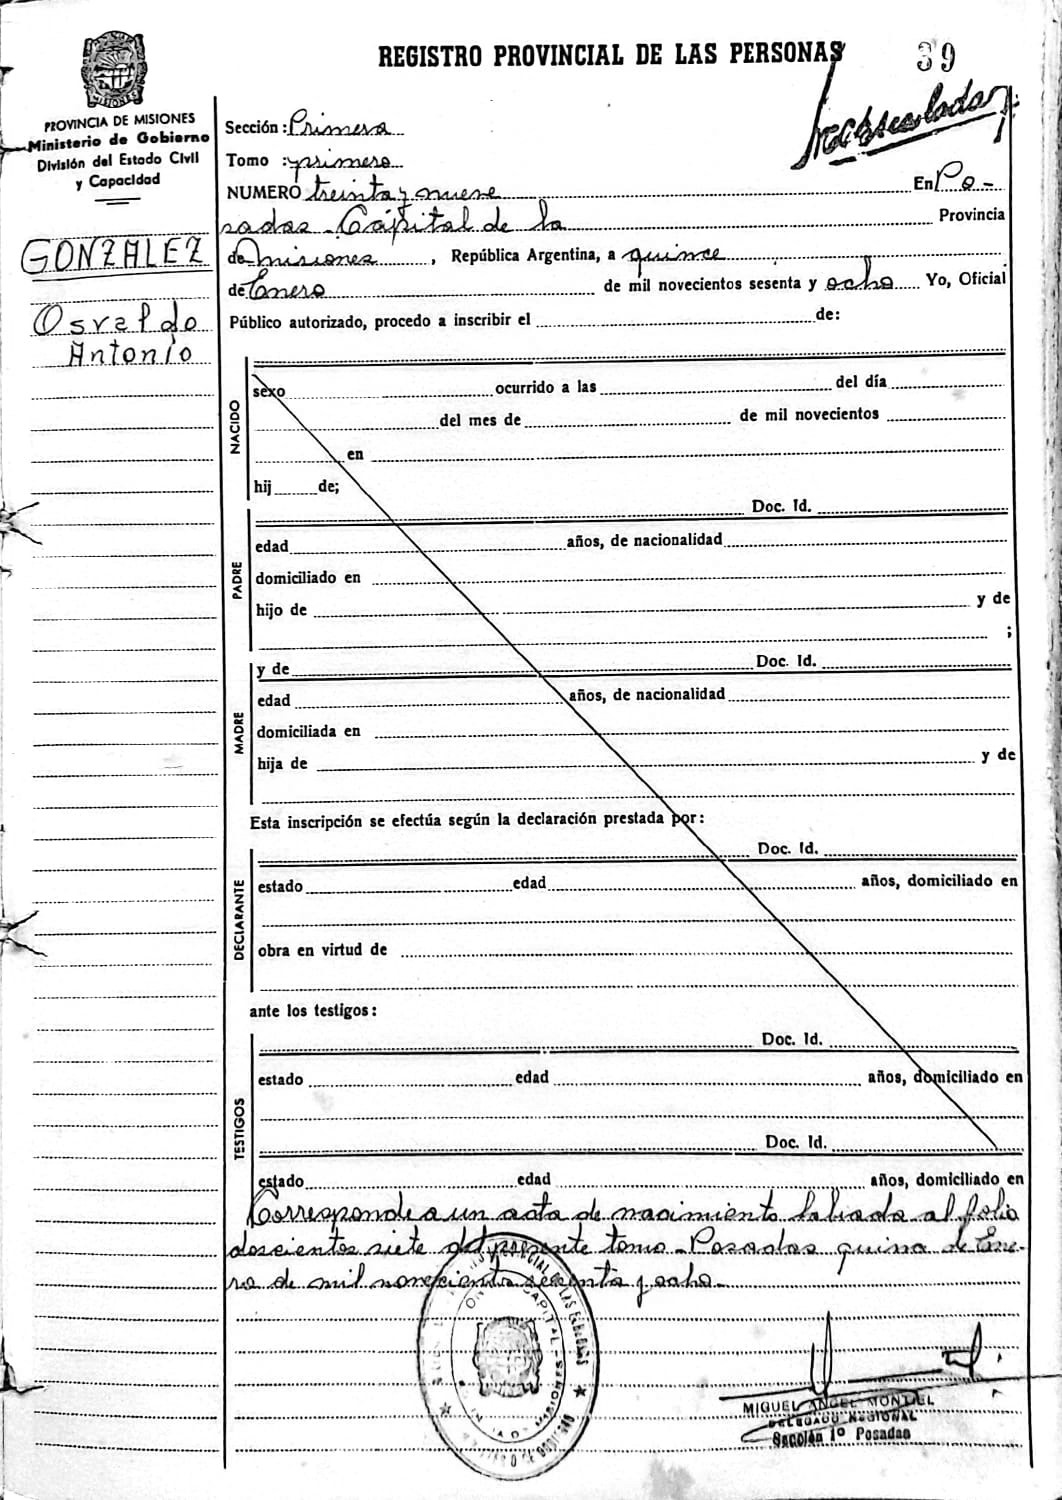 REGISTRO PROVINCIAL DE LAS PERSONAS
39
MISIONES
PROVINCIA DE MISIONES
Ministerio de Gobierno
División del Estado Civil
y Capacidad
GONZALEZ
Osvaldo
Antonio
Sección: Primera
Tomo: primero
NUMERO treinta y nueve En Po-
sadas - Capital de la Provincia
de Misiones, República Argentina, a quince
de Enero de mil novecientos sesenta y ocho Yo, Oficial
Público autorizado, procedo a inscribir el de:
NACIDO
sexo ocurrido a las del día
del mes de de mil novecientos
en
hij de;
PADRE
Doc. Id.
edad años, de nacionalidad
domiciliado en
hijo de y de
;
MADRE
y de Doc. Id.
edad años, de nacionalidad
domiciliada en
hija de y de
Esta inscripción se efectúa según la declaración prestada por:
DECLARANTE
Doc. Id.
estado edad años, domiciliado en
obra en virtud de
ante los testigos:
TESTIGOS
Doc. Id.
estado edad años, domiciliado en
Doc. Id.
estado edad años, domiciliado en
Corresponde a un acta de nacimiento labrada al folio
doscientos siete del presente tomo - Posadas quince de Ene-
ro de mil novecientos sesenta y ocho.
MIGUEL ANGEL MONTIEL
DELEGADO REGIONAL
Sección 1º Posadas